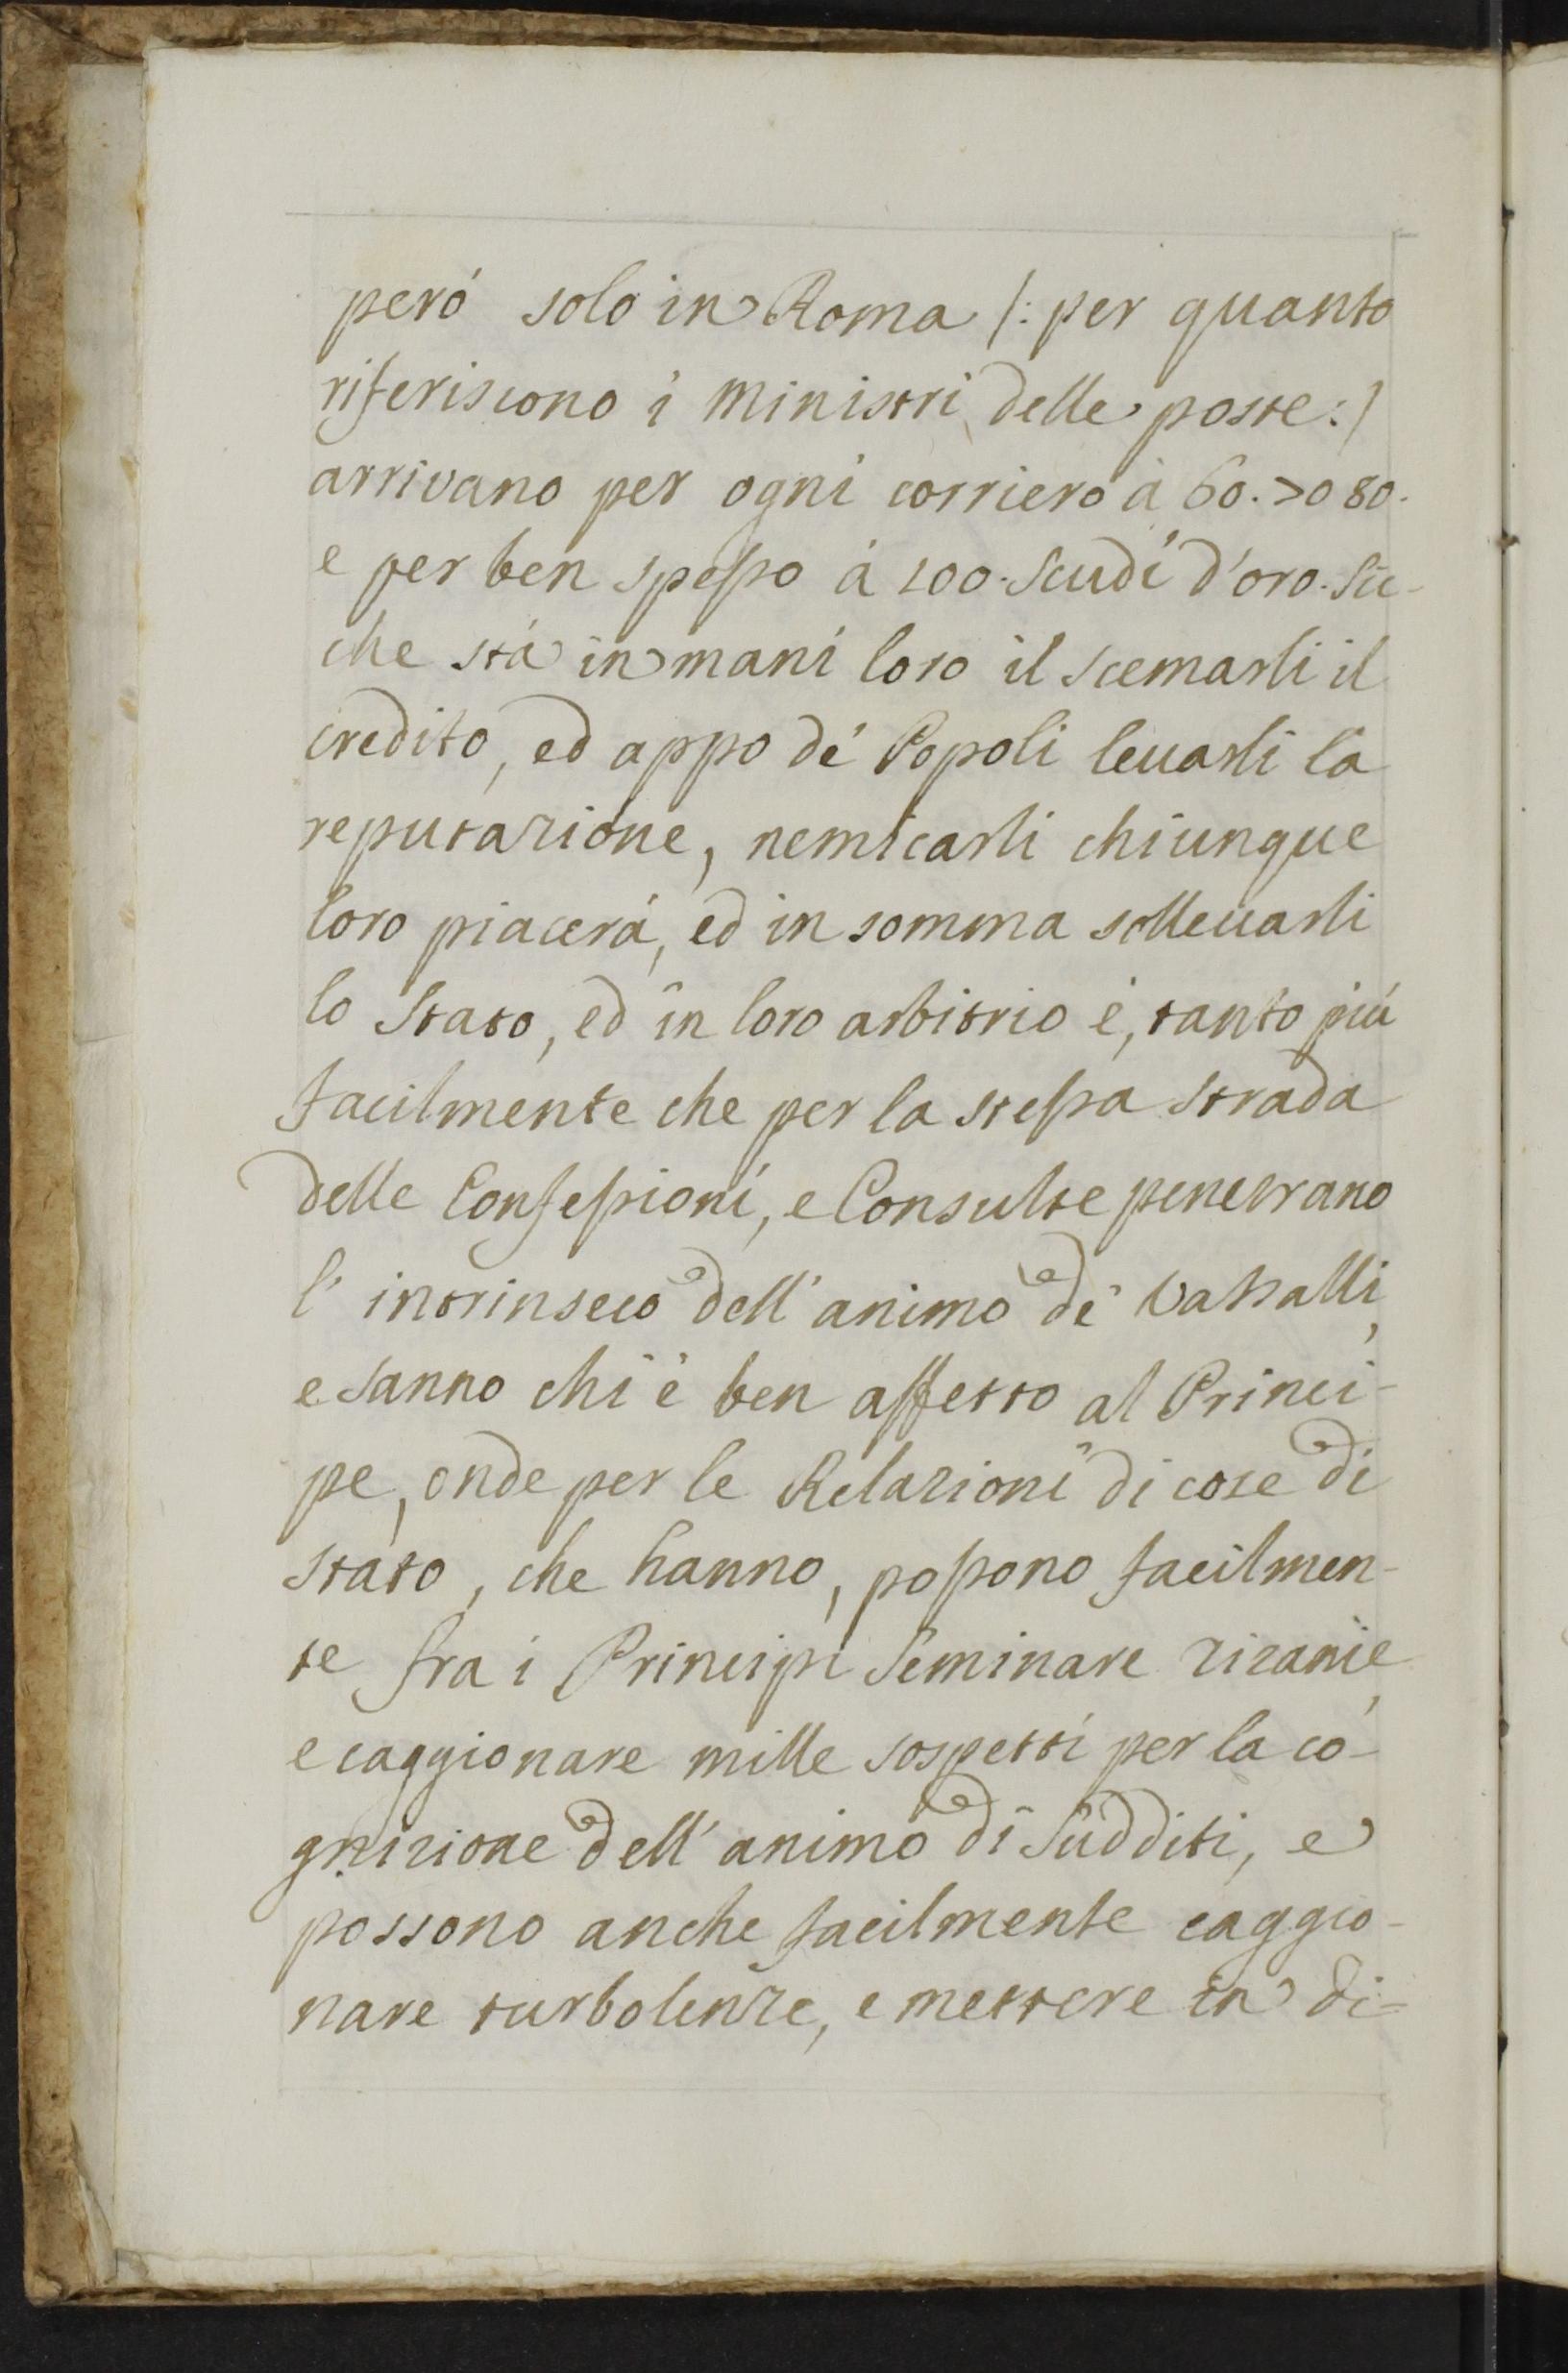 peró solo in Roma /: per quanto
riferiscono i Ministri delle poste:/
arrivano per ogni corriero à 60. 70 80.
e per ben spesso à 100. Scudi d'oro. Sic-
che stà in mani loro il scemarli il
credito, ed appo de' Popoli leuarli la
reputazione, nemicarli chiunque
loro piacerà, ed in somma solleuarli
lo Stato, ed in loro arbitrio è, tanto più
facilmente che per la stessa strada
delle Confessioni, e Consulte penetrano
l'intrinseco dell'animo de' Vassalli,
e sanno chi è ben affetto al Princi-
pe, onde per le Relazioni di cose di
stato, che hanno, possono facilmen-
te fra i Principi seminare zizanie,
e caggionare mille sospetti per la co-
gnizione dell'animo di Sudditi, e
possono anche facilmente caggio-
nare turbolenze, e mettere in di=